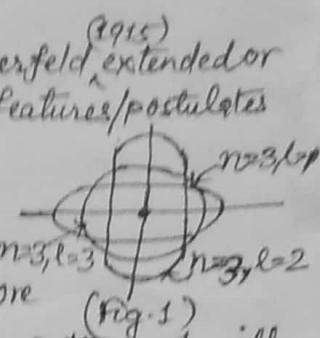 (1915)
erfeld, extended or
features/postulates
n=3, l=
n=3, l=3
n=3, l=2
ore
(Fig. 1)